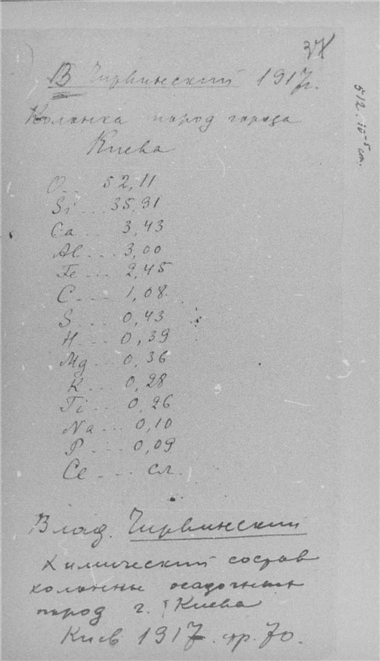 37
В Чирвинский 1917г.
Колонка пород города
Киева
O... 52,11
Si... 35,91
Ca... 3,43
Al... 3,00
Fe... 2,45
C... 1,08
S... 0,43
H... 0,39
Mg... 0,36
K... 0,28
Ti... 0,26
Na... 0,10
P... 0,09
Ce... сл.
Влад. Чирвинский
Химический состав
колонны осадочных
пород г. Киева
Киев 1917. стр. 70.
512. 10⁻⁵ cm.